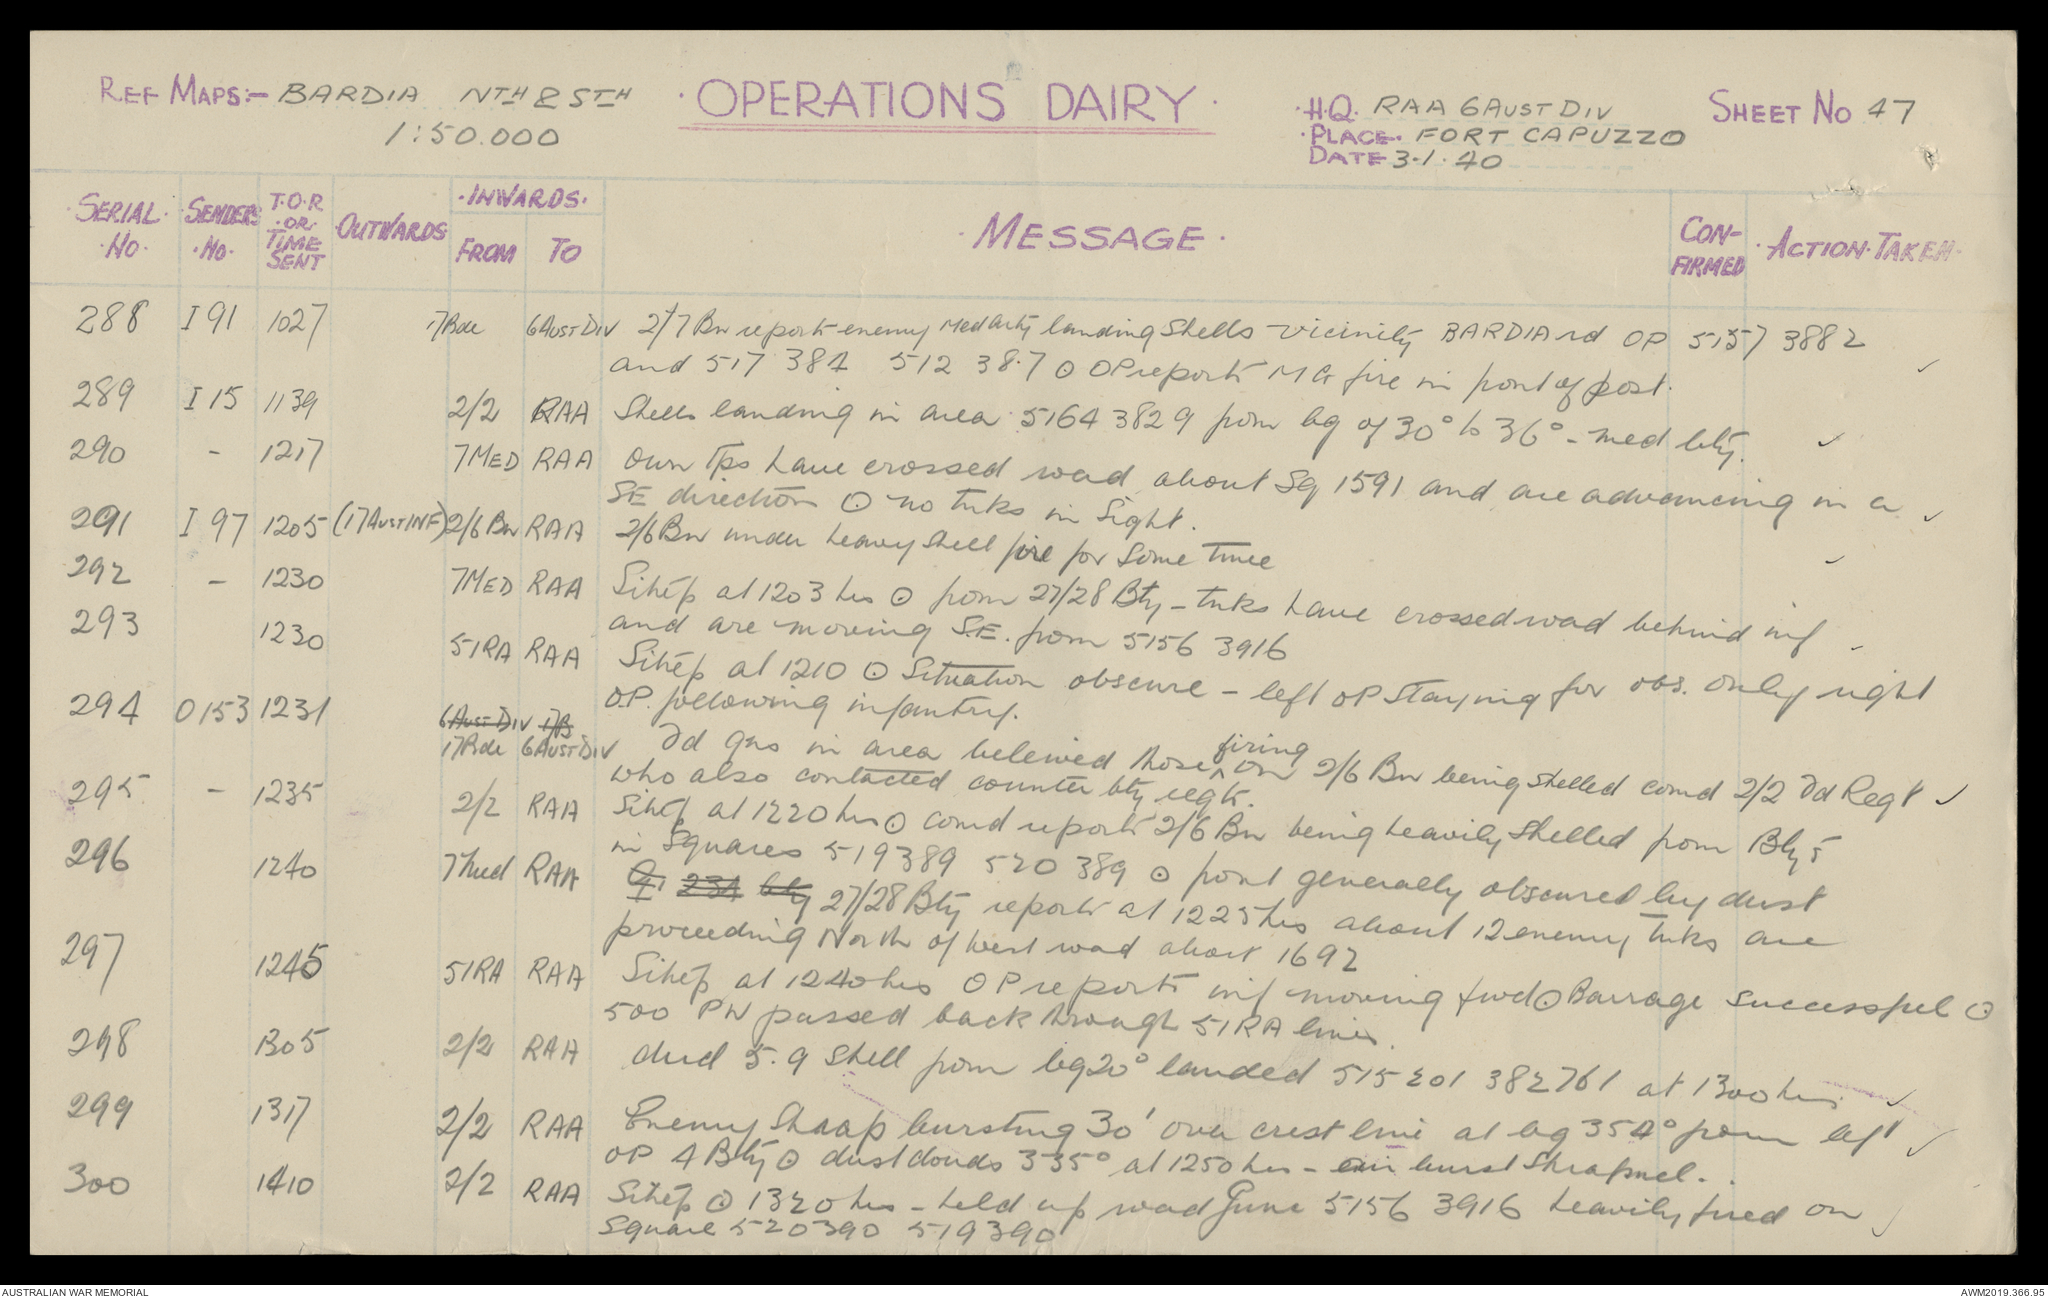 REF MAPS:- BARDIA NTH & STH
1:50.000
·OPERATIONS DAIRY·
·H.Q. RAA 6 AUST DIV
·PLACE. FORT CAPUZZO
DATE 3.1.40
SHEET No 47
·SERIAL· ·No·
SENDERS ·No·
T.O.R ·OR· TIME SENT
OUTWARDS
·INWARDS·
FROM TO
·MESSAGE·
CON-FIRMED
·ACTION·TAKEN·
288 I 91 1027 17 Bde 6 AUST DIV 2/7 Bn report enemy Med arty landing shells vicinity BARDIA rd OP 5157 3882
and 517 384 512 38.7 ⊙ OP reports MG fire in front of post. ✓
289 I 15 1139 2/2 RAA Shells landing in area 5164 3829 from bg of 30° to 36° - med bty. ✓
290 - 1217 7 MED RAA Own Tps have crossed road about Sq 1591 and are advancing in a
SE direction ⊙ no tnks in sight. ✓
291 I 97 1205 (17 AUST INF) 2/6 Bn RAA 2/6 Bn under heavy shell fire for some time ✓
292 - 1230 7 MED RAA Sitrep at 1203 hrs ⊙ from 27/28 Bty - tnks have crossed road behind inf
and are moving S.E. from 5156 3916
293 1230 51 RA RAA Sitrep at 1210 ⊙ Situation obscure - left OP staying for obs. only right
O.P. following infantry.
294 O 153 1231 6 AUST DIV 17B
17 Bde 6 AUST DIV Fd gns in area beleived those firing on 2/6 Bn being shelled comd 2/2 Fd Regt ✓
who also contacted counter bty regt.
295 - 1235 2/2 RAA Sitrep at 1220 hrs ⊙ comd reports 2/6 Bn being heavily shelled from Btys
in squares 519389 520 389 ⊙ front generally obscured by dust
296 1240 7 Med RAA 234 bty 27/28 Bty reports at 1225 hrs about 12 enemy tnks are
proceeding North of West road about 1692
297 1245 51 RA RAA Sitrep at 1240 hrs OP reports inf moving fwd ⊙ Barrage successful ⊙
500 PW passed back through 51 RA lines.
298 1305 2/2 RAA dud 5.9 shell from bg 20° landed 515201 382761 at 1300 hrs. ✓
299 1317 2/2 RAA Enemy Shrap bursting 30' over crest line at bg 354° from left ✓
OP A Bty ⊙ dust clouds 335° at 1250 hrs - air burst shrapnel.
300 1410 2/2 RAA Sitrep ⊙ 1320 hrs - held up road Junc 5156 3916 heavily fired on ✓
Square 520390 519390
AUSTRALIAN WAR MEMORIAL
AWM2019.366.95